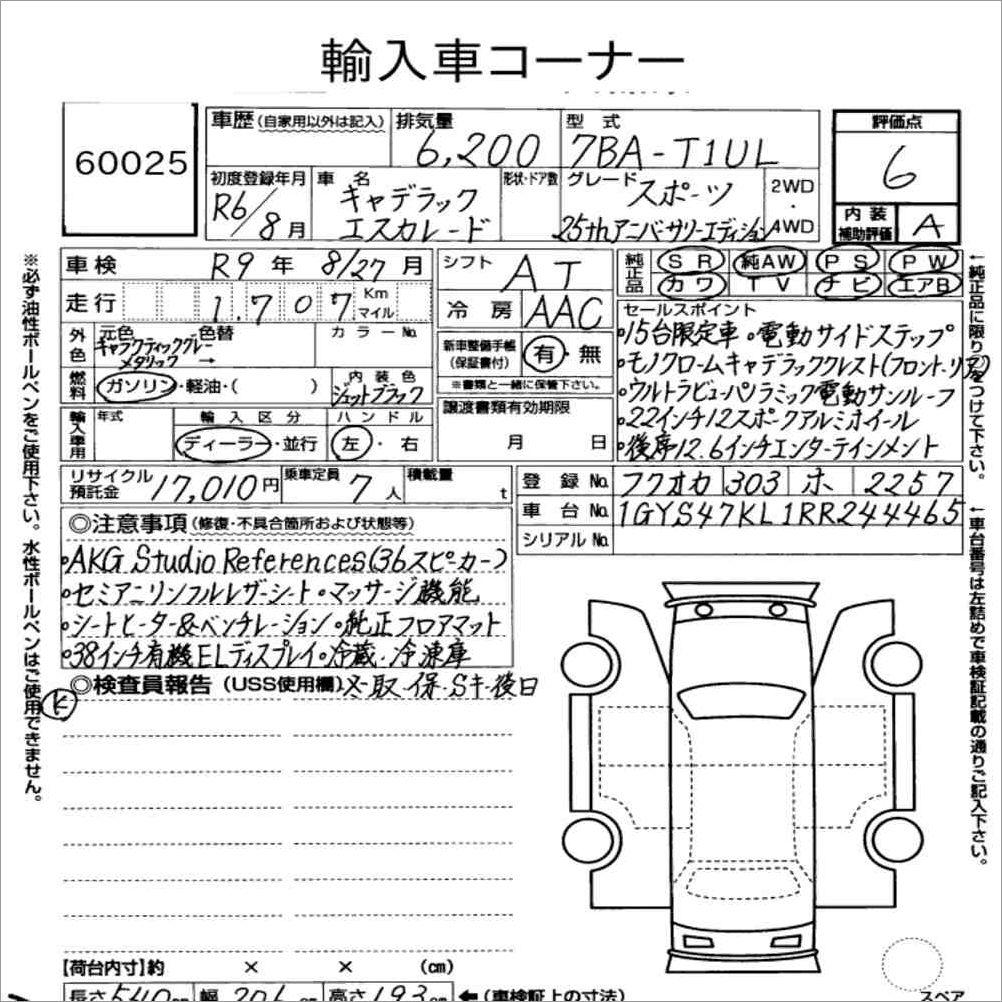 輸入車コーナー
60025
車歴 (自家用以外は記入)
排気量
6,200
型式
7BA-T1UL
評価点
6
内装補助評価
A
初度登録年月
R6/8月
車名
キャデラック
エスカレード
形状・ドア数
グレード
スポーツ
25thアニバーサリーエディション
2WD
・
4WD
車検
R9年 8/27月
シフト
AT
純正品
SR 純AW PS PW
カワ TV ナビ エアB
走行
1,707
Km
マイル
冷房
AAC
セールスポイント
・15台限定車・電動サイドステップ
・モノクロームキャデラッククレスト(フロント・リア)
・ウルトラビューパノラミック電動サンルーフ
・22インチ12スポークアルミホイール
・後席12.6インチエンターテインメント
外色
元色 色替
ギャラクティックグレー
メタリック →
カラーNo.
新車整備手帳
(保証書付)
有・無
※書類と一緒に保管下さい。
燃料
ガソリン・軽油・( )
内装色
ジェットブラック
輸入車用
年式
輸入区分
ディーラー・並行
ハンドル
左・右
譲渡書類有効期限
月 日
リサイクル預託金
17,010円
乗車定員
7人
積載量
t
登録No.
フクオカ 303 ホ 2257
車台No.
1GYS47KL1RR244465
シリアルNo.
◎注意事項 (修復・不具合箇所および状態等)
・AKG Studio References(36スピーカー)
・セミアニリンフルレザーシート・マッサージ機能
・シートヒーター&ベンチレーション・純正フロアマット
・38インチ有機ELディスプレイ・冷蔵・冷凍庫
◎検査員報告 (USS使用欄)
取・保・Sキ・後日
※必ず油性ボールペンをご使用下さい。水性ボールペンはご使用できません。
←純正品に限り○をつけて下さい。
←車台番号は左詰めで車検証記載の通りご記入下さい。
【荷台内寸】約 × × (cm)
長さ540cm 幅206 高さ193cm ←(車検証上の寸法)
スペア